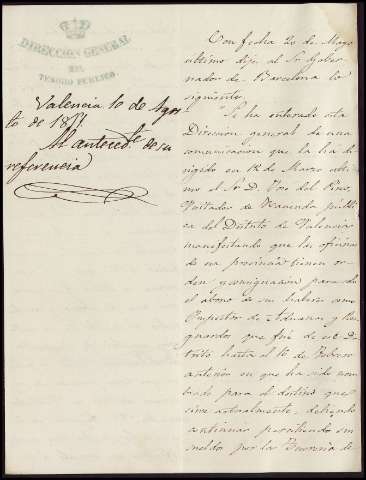 DIRECCION GENERAL
DEL
TESORO PUBLICO
Valencia 10 de Agos
to de 18
Al anteced.te de su
referencia
Con fecha 20 de Mayo
ultimo dije al Sr Gober-
nador de Barcelona lo
siguiente.
Se ha enterado esta
Direccion general de una
comunicacion que la ha di-
rigido en 12 de Marzo ulti-
mo el Sr D. José del Pino,
Contador de Hacienda públi-
ca del Distrito de Valencia
manifestando que las oficinas
de su provincia tienen or-
den y consignacion para
el abono de su haber como
Inspector de Aduanas y Res-
guardos que fué de ese Dis-
trito hasta el 16 de Febrero
anterior en que ha sido nom-
brado para el destino que
sirve actualmente, debiendo
continuar percibiendo sus
sueldos por la Tesoreria de